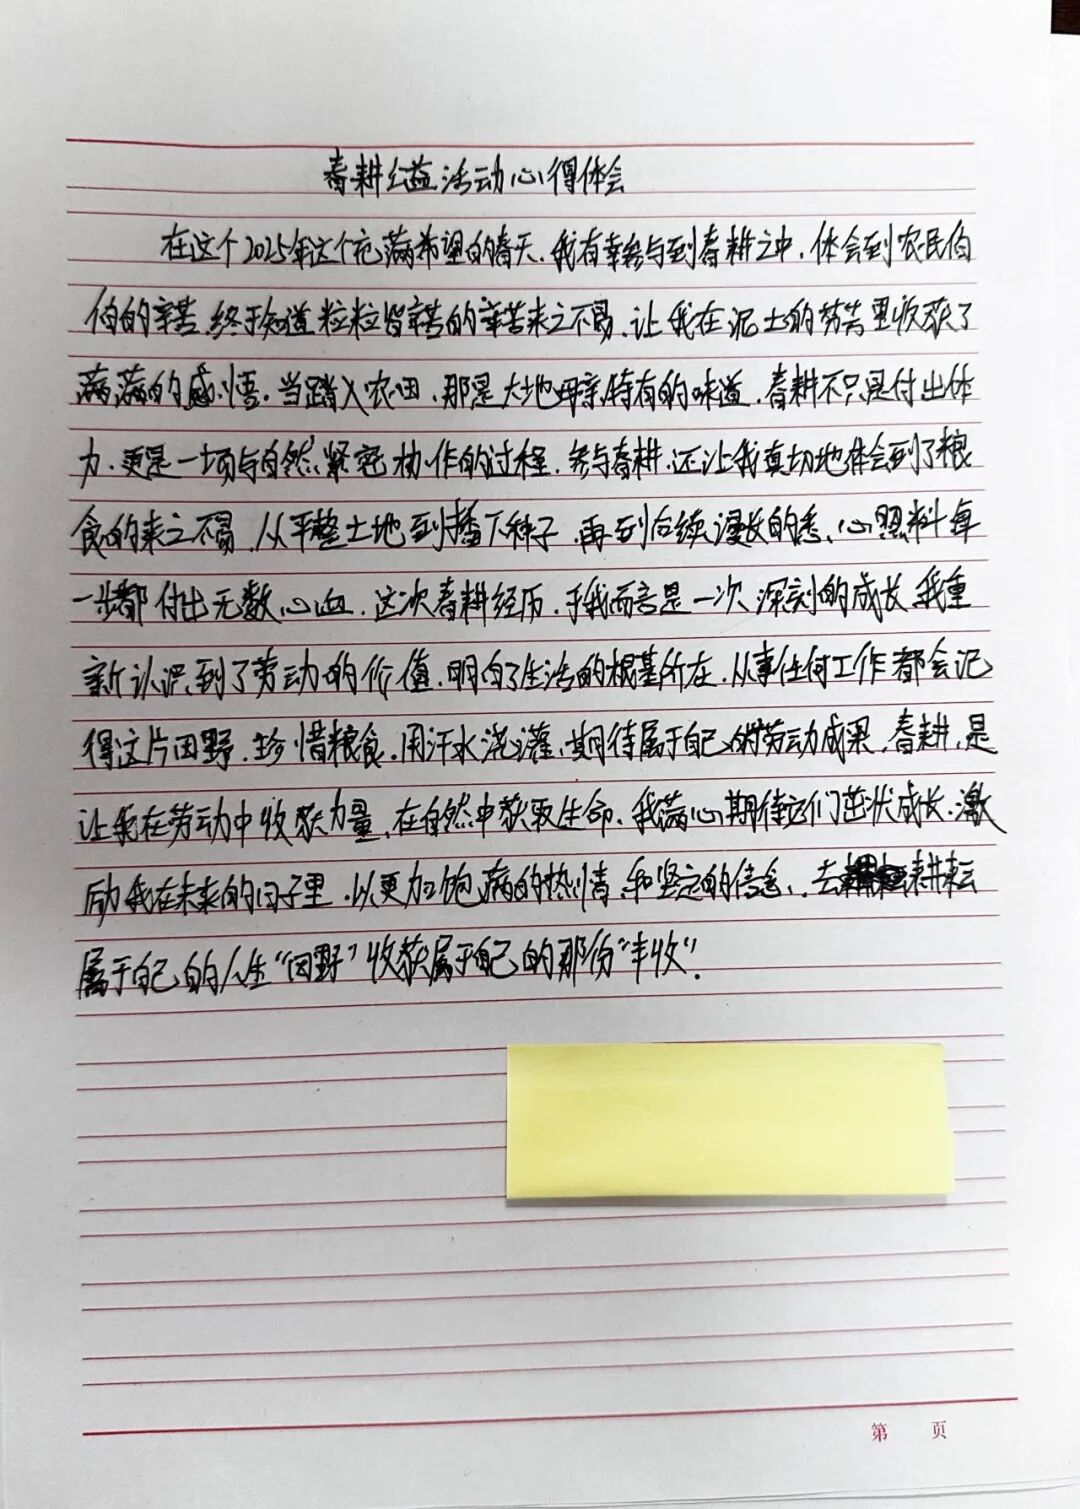 春耕公益活动心得体会
在这个2025年这个充满希望的春天.我有幸参与到春耕之中.体会到农民伯
伯的辛苦.终于知道粒粒皆辛苦的辛苦来之不易.让我在泥土的芬芳里收获了
满满的感悟.当踏入农田.那是大地母亲特有的味道.春耕不只是付出体
力.更是一场与自然紧密协作的过程.参与春耕.还让我真切地体会到了粮
食的来之不易.从平整土地到播下种子.再到后续漫长的悉心照料每
一步都付出无数心血.这次春耕经历.于我而言是一次深刻的成长.我重
新认识到了劳动的价值.明白了生活的根基所在.从事任何工作都会记
得这片田野.珍惜粮食.用汗水浇灌.期待属于自己的劳动成果.春耕.是
让我在劳动中收获力量.在自然中获取生命.我满心期待它们茁壮成长.激
励我在未来的日子里.以更加饱满的热情和坚定的信念、去耕耘
属于自己的人生"田野"收获属于自己的那份"丰收".
第 页